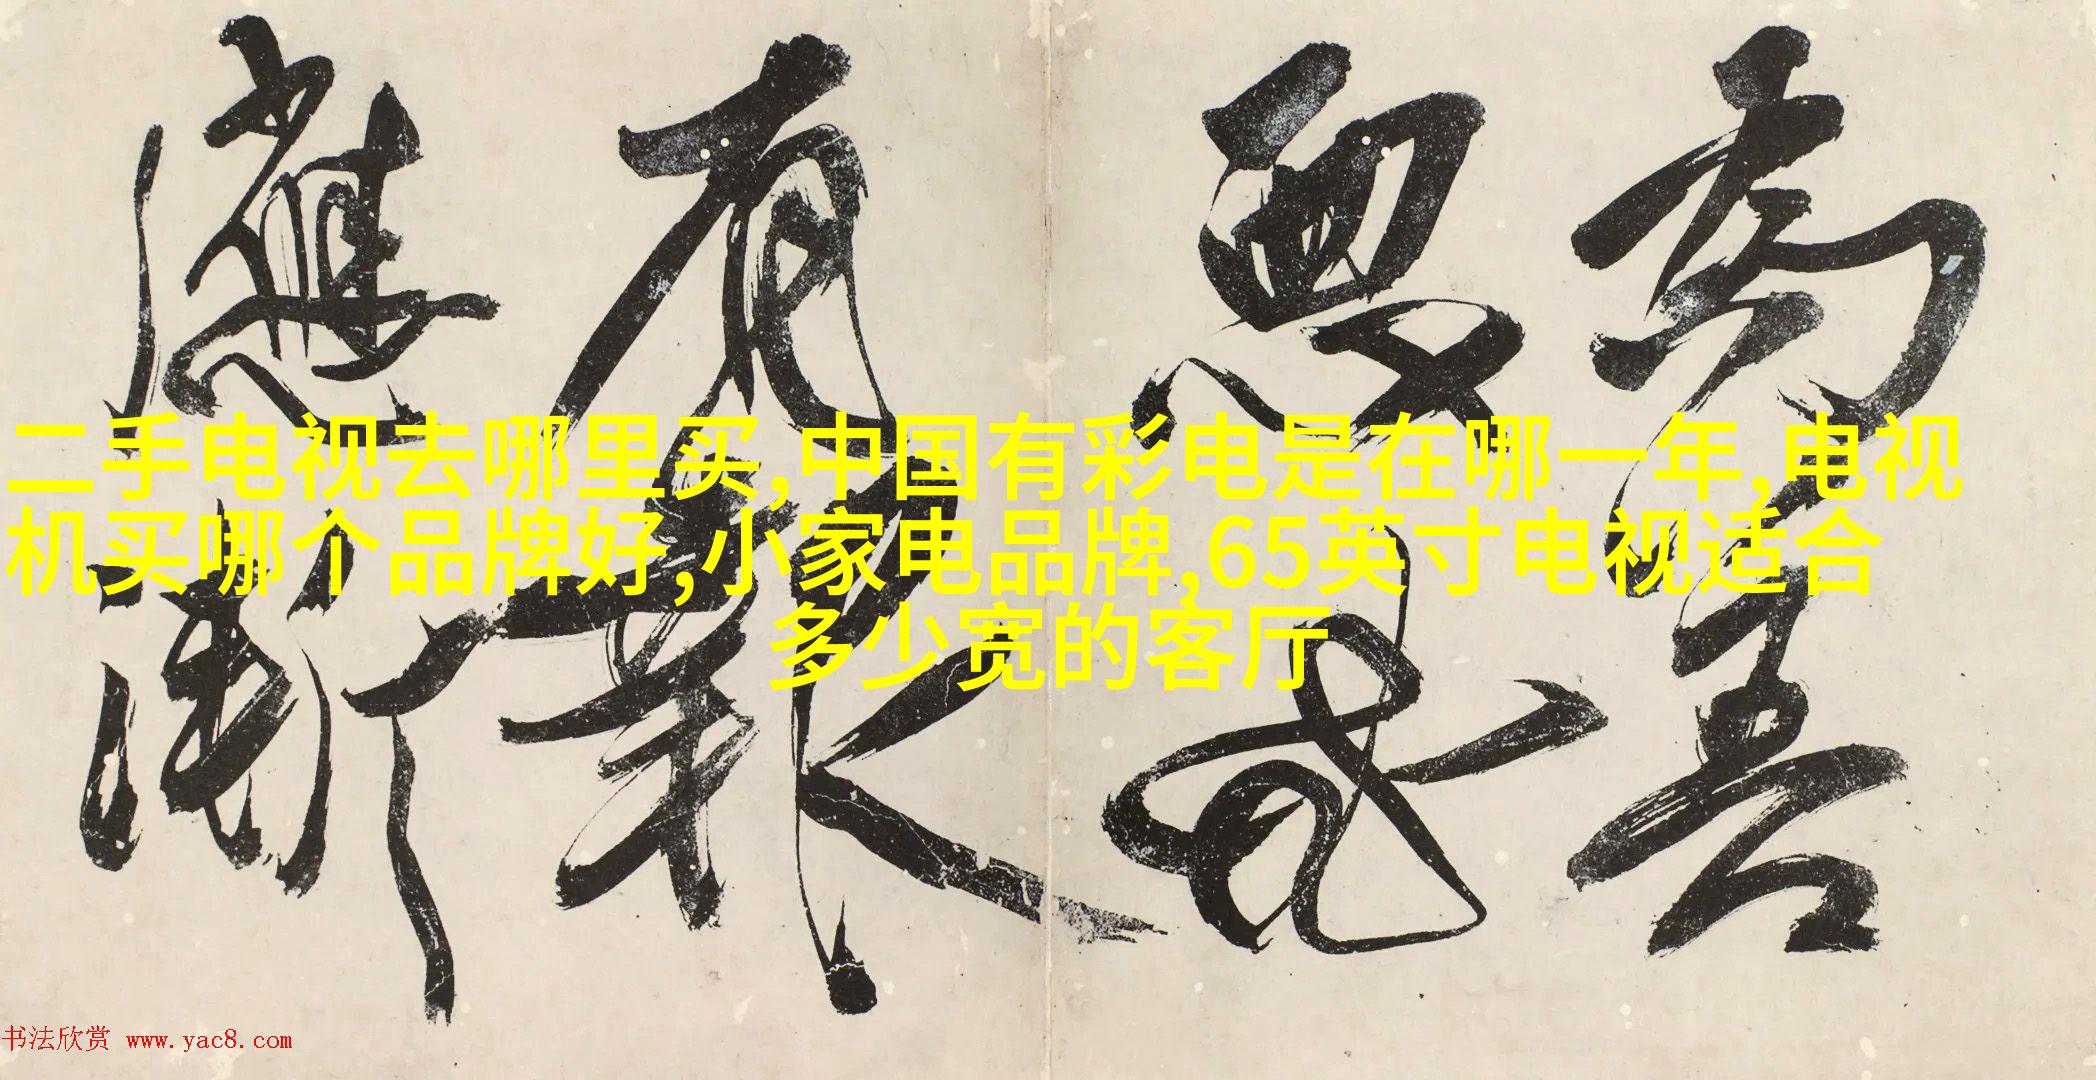 二手电视去哪里买,中国有彩电是在哪一年,电视
机买哪个品牌好,小家电品牌,65英寸电视适合
多少宽的客厅
為善
惡
有報
應
书法欣赏 www.yac8.com